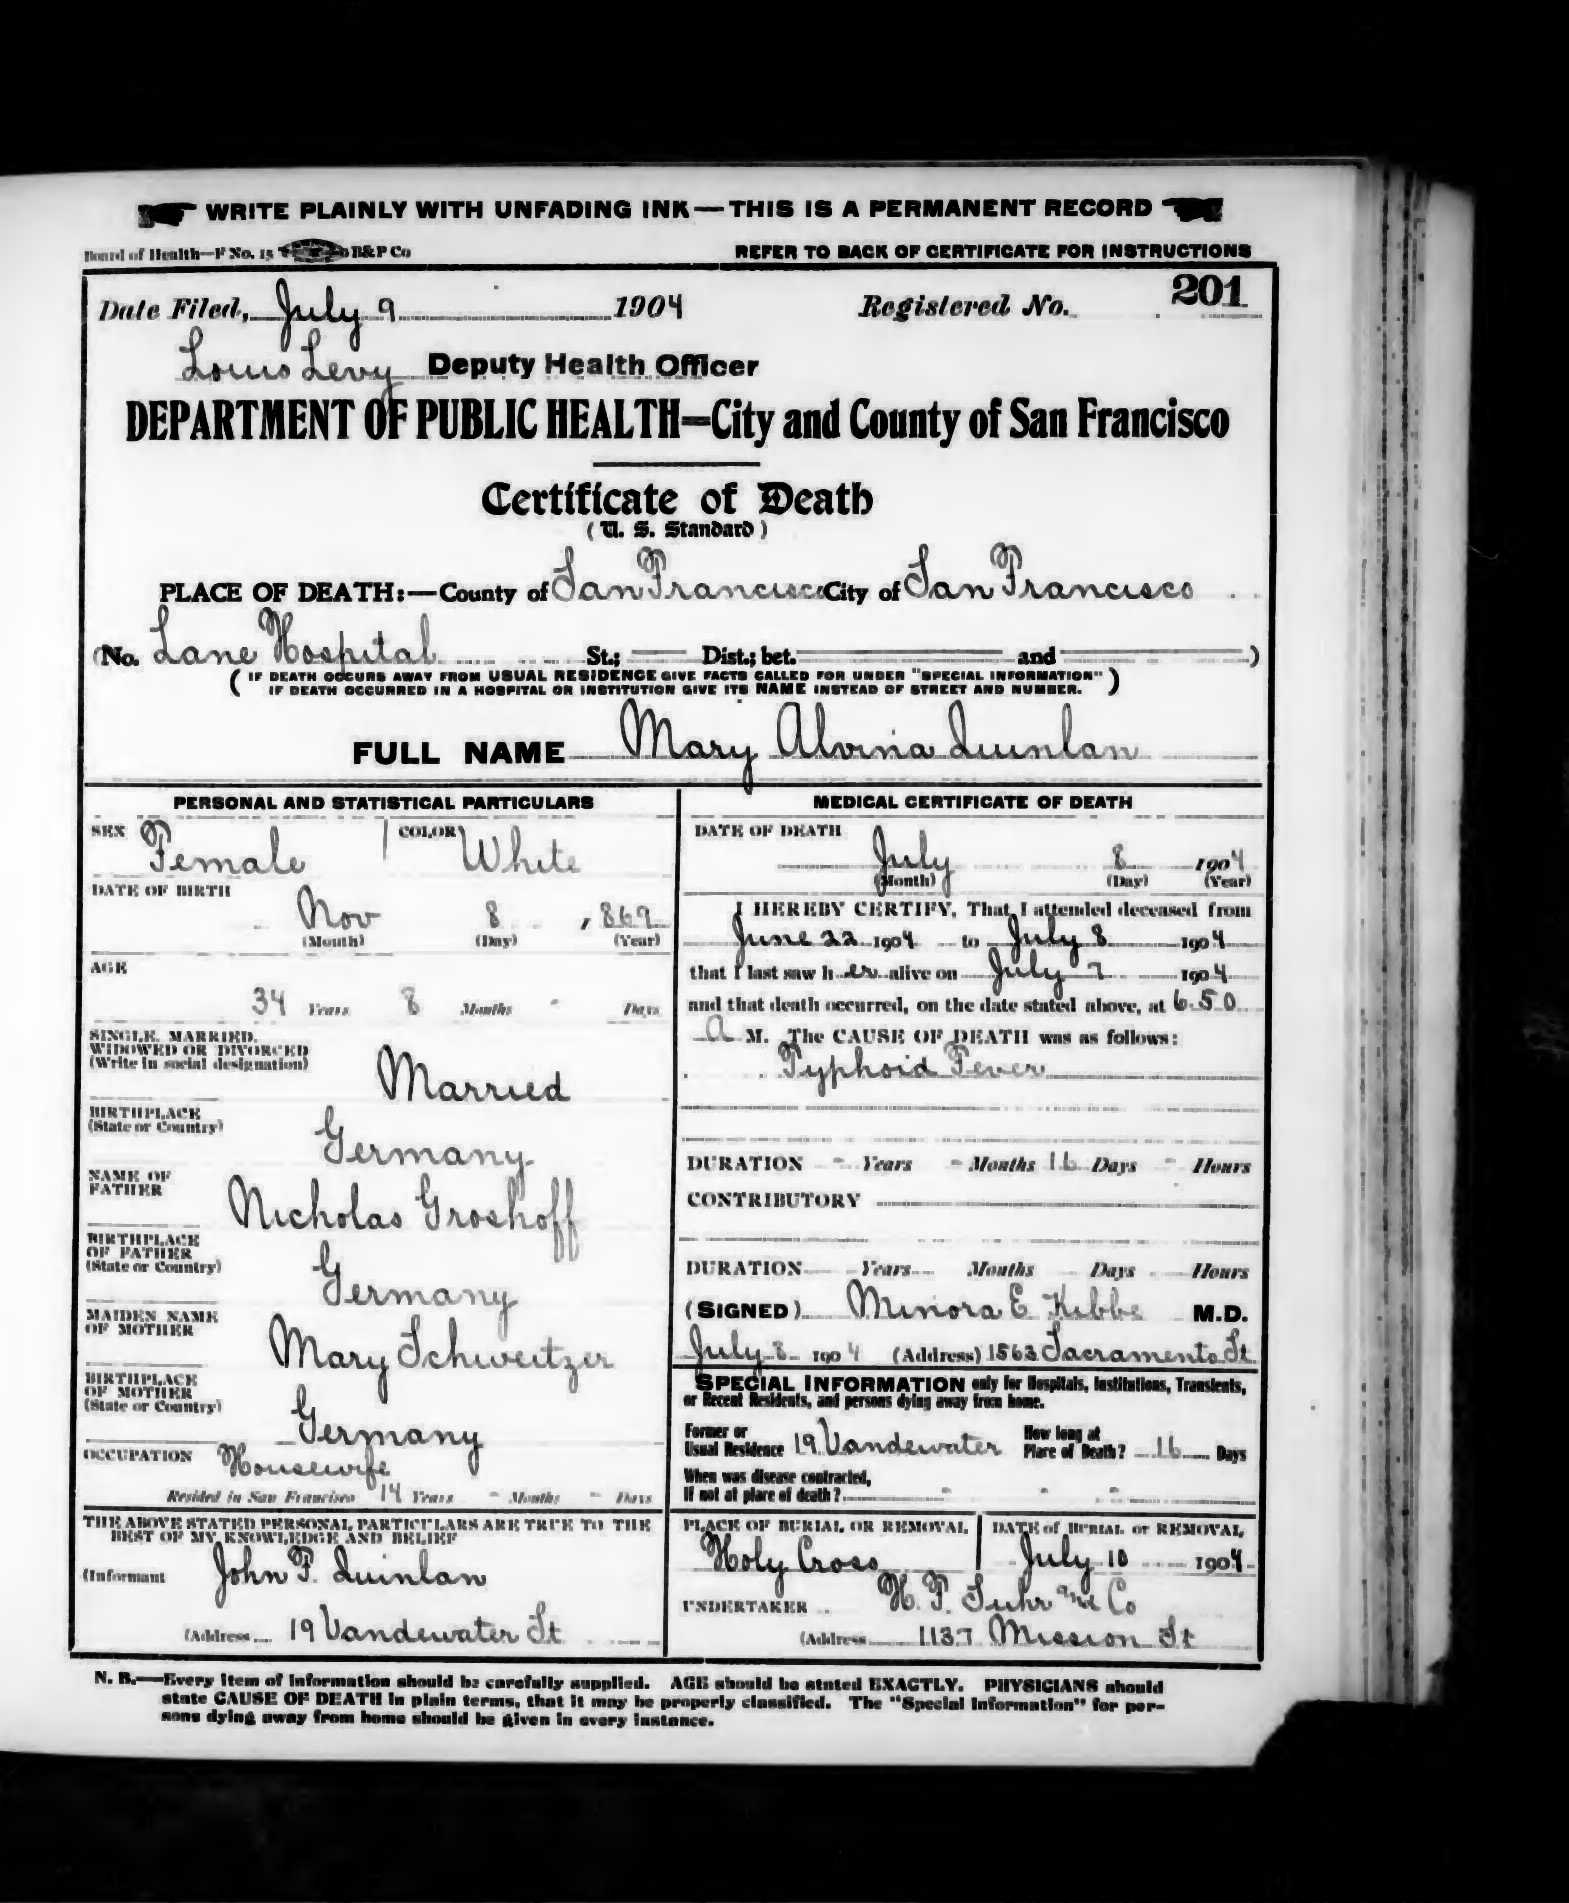 WRITE PLAINLY WITH UNFADING INK—THIS IS A PERMANENT RECORD
Board of Health—F No. 15 B&P Co REFER TO BACK OF CERTIFICATE FOR INSTRUCTIONS
Date Filed, July 9 1904 Registered No. 201
Louis Levy Deputy Health Officer
DEPARTMENT OF PUBLIC HEALTH=City and County of San Francisco
Certificate of Death
(U. S. Standard)
PLACE OF DEATH:—County of San Francisco City of San Francisco
(No. Lane Hospital St.; Dist.; bet. and )
(IF DEATH OCCURS AWAY FROM USUAL RESIDENCE GIVE FACTS CALLED FOR UNDER "SPECIAL INFORMATION"
IF DEATH OCCURRED IN A HOSPITAL OR INSTITUTION GIVE ITS NAME INSTEAD OF STREET AND NUMBER.)
FULL NAME Mary Alvina Quinlan
PERSONAL AND STATISTICAL PARTICULARS
SEX Female COLOR White
DATE OF BIRTH
Nov 8 , 869
(Month) (Day) (Year)
AGE
34 Years 8 Months - Days
SINGLE, MARRIED,
WIDOWED OR DIVORCED
(Write in social designation)
Married
BIRTHPLACE
(State or Country)
Germany
NAME OF
FATHER
Nicholas Groshoff
BIRTHPLACE
OF FATHER
(State or Country)
Germany
MAIDEN NAME
OF MOTHER
Mary Schweitzer
BIRTHPLACE
OF MOTHER
(State or Country)
Germany
OCCUPATION Housewife
Resided in San Francisco 14 Years - Months - Days
THE ABOVE STATED PERSONAL PARTICULARS ARE TRUE TO THE
BEST OF MY KNOWLEDGE AND BELIEF
(Informant John F. Quinlan
(Address 19 Vandewater St
MEDICAL CERTIFICATE OF DEATH
DATE OF DEATH
July 8 1904
(Month) (Day) (Year)
I HEREBY CERTIFY, That I attended deceased from
June 22 1904 to July 8 1904
that I last saw h er alive on July 7 1904
and that death occurred, on the date stated above, at 6.50
A M. The CAUSE OF DEATH was as follows:
Typhoid Fever
DURATION - Years - Months 16 Days - Hours
CONTRIBUTORY
DURATION Years Months Days Hours
(SIGNED) Minora E Kibbe M.D.
July 8 1904 (Address) 1563 Sacramento St
SPECIAL INFORMATION only for Hospitals, Institutions, Transients,
or Recent Residents, and persons dying away from home.
Former or
Usual Residence 19 Vandewater
How long at
Place of Death? 16 Days
When was disease contracted,
If not at place of death? - - -
PLACE OF BURIAL OR REMOVAL
Holy Cross
DATE of BURIAL or REMOVAL
July 10 1904
UNDERTAKER H. F. Suhr and Co
(Address 1137 Mission St
N. B.—Every item of information should be carefully supplied. AGE should be stated EXACTLY. PHYSICIANS should
state CAUSE OF DEATH in plain terms, that it may be properly classified. The "Special Information" for per-
sons dying away from home should be given in every instance.